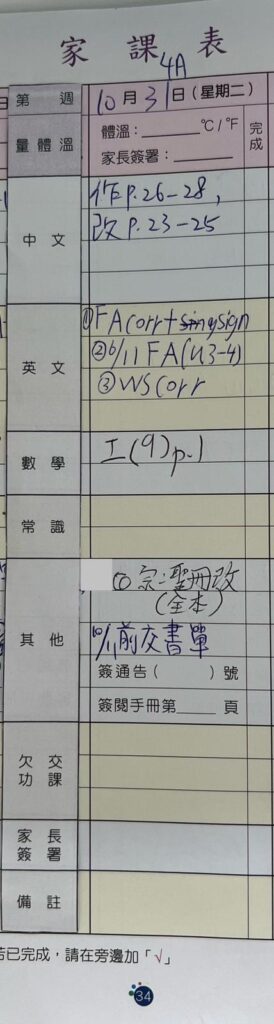 家課表
4A
第 週 10月31日(星期二)
量體溫 體溫:______°C/°F 完成
家長簽署:______
中文 作P.26-28,
改P.23-25
英文 ①FA corr+sign
②6/11 FA(U3-4)
③WS corr
數學 工(9)p.1
常識
其他 ①宗:聖冊改
(全本)
前交書單
簽通告( )號
簽閱手冊第____頁
欠交功課
家長簽署
備註
若已完成,請在旁邊加「√」
34